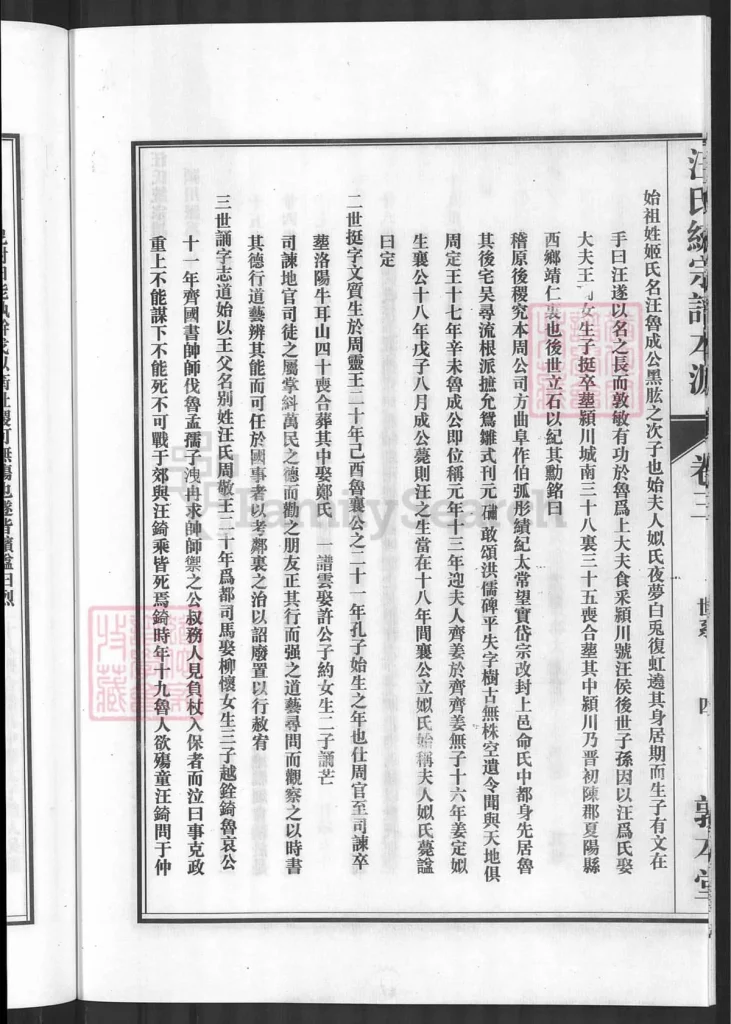 汪氏統宗譜本源
卷三
世系
四
敦本堂
始祖姓姬氏名汪魯成公黑肱之次子也始夫人姒氏夜夢白兎復虹遶其身居期而生子有文在
手曰汪遂以名之長而敦敏有功於魯爲上大夫食采潁川號汪侯後世子孫因以汪爲氏娶
大夫王女生子挺卒塟潁川城南三十八裏三十五喪合塟其中潁川乃晋初陳郡夏陽縣
西鄉靖仁裏也後世立石以紀其勳銘曰
稽原後稷究本周公司方曲阜作伯弧彤績紀太常望實岱宗改封上邑命氏中都身先居魯
其後宅吳尋流根派摭允鴛雛式刊元碑敢頌洪儒碑平失字樹古無株空遺令聞與天地俱
周定王十七年辛未魯成公即位稱元年十三年迎夫人齊姜於齊齊姜無子十六年姜定姒
生襄公十八年戊子八月成公薨則汪之生當在十八年間襄公立姒氏始稱夫人姒氏薨諡
曰定
二世挺字文質生於周靈王二十年己酉魯襄公之二十一年孔子始生之年也仕周官至司諫卒
塟洛陽牛耳山四十喪合葬其中娶鄭氏 一譜雲娶許公子約女生二子誦芒
司諫地官司徒之屬掌糾萬民之德而勸之朋友正其行而强之道藝尋問而觀察之以時書
其德行道藝辨其能而可任於國事者以考鄰裏之治以詔廢置以行赦宥
三世誦字志道始以王父名别姓汪氏周敬王二十年爲都司馬娶柳懷女生三子越銓錡魯哀公
十一年齊國書帥師伐魯孟孺子洩冉求帥師禦之公叔務人見負杖入保者而泣曰事克政
重上不能謀下不能死不可戰于郊與汪錡乘皆死焉錡時年十九魯人欲殤童汪錡問于仲